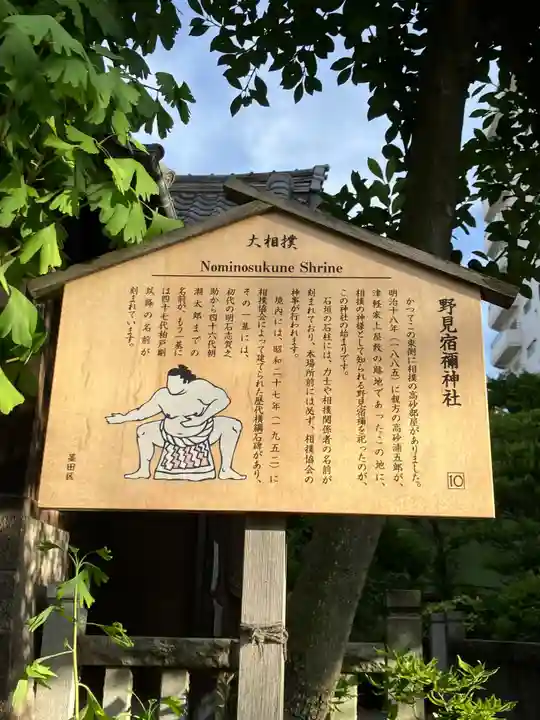 大相撲
Nominosukune Shrine
野見宿禰神社
かつてこの東側に相撲の高砂部屋がありました。
明治十八年(一八八五)に親方の高砂浦五郎が、
津軽家上屋敷の跡地であったこの地に、
相撲の神様として知られる野見宿禰を祀ったのが、
この神社の始まりです。
石垣の石柱には、力士や相撲関係者の名前が
刻まれており、本場所前には必ず、相撲協会の
神事が行われます。
境内には、昭和二十七年(一九五二)に
相撲協会によって建てられた歴代横綱石碑があり、
その一基には、
初代の明石志賀之
助から四十六代朝
潮太郎までの
名前が、もう一基に
は四十七代柏戸剛
以降の名前が
刻まれています。
墨田区
10